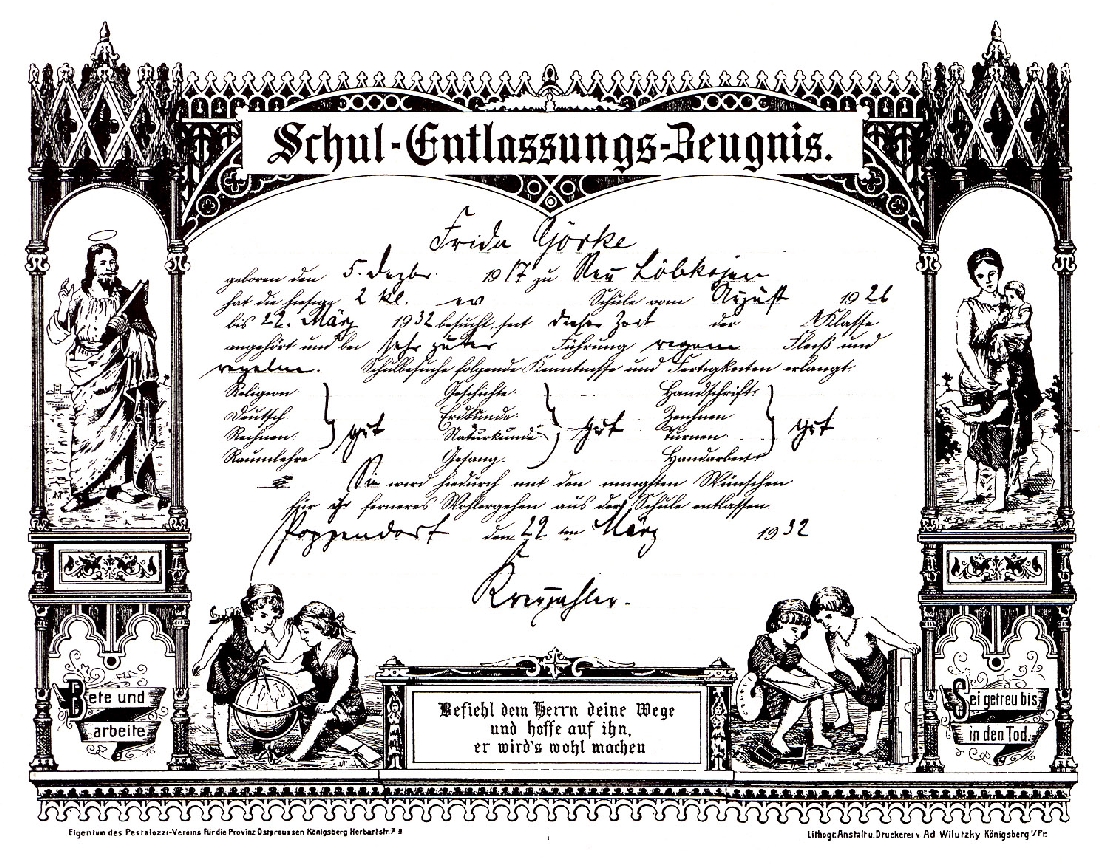 Schul-Entlassungs-Zeugnis.
Frida Görke
geboren den 5. Dezbr. 1917 zu Neu Löbkojen
hat die hiesige 2 kl. ev Schule vom August 1926
bis 22. März 1932 besucht, seit dieser Zeit der Klasse
angehört und bei sehr guter Führung regem Fleiß und
regelm. Schulbesuche folgende Kenntnisse und Fertigkeiten erlangt:
Religion Geschichte Handschrift
Deutsch Erdkunde Zeichnen
Rechnen gut Naturkunde gut Turnen gut
Raumlehre Gesang Handarbeit
Sie wird hiedurch mit den innigsten Wünschen
für ihr ferneres Wohlergehen aus der Schule entlassen
Poggendorf den 22 ten März 1932
Bete und
arbeite
Befiehl dem Herrn deine Wege
und hoffe auf ihn,
er wird's wohl machen
Sei getreu bis
in den Tod.
Eigentum des Pestalozzi-Vereins für die Provinz Ostpreussen Königsberg Herbartstr.
Lithogr. Anstalt u. Druckerei v. Ad. Wilutzky Königsberg i/Pr.